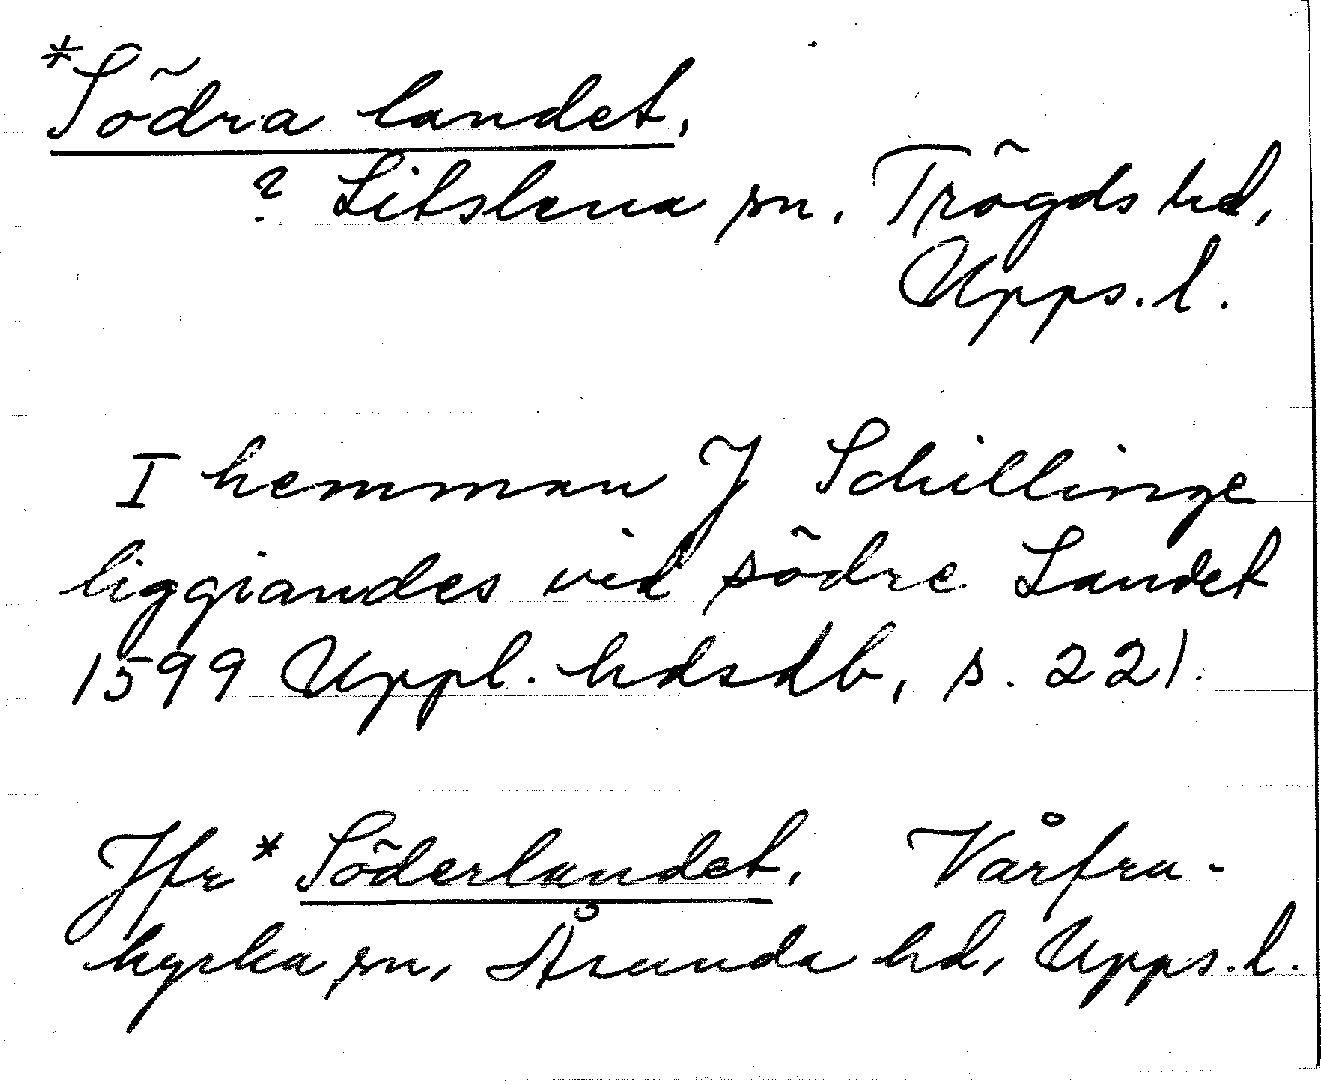 *Södra landet,
? Litslena sn. Trögds hd,
Upps. l.
I hemman J Schillinge
liggiandes vid södre Landet
1599 Uppl. hdsdb, s. 221.
Jfr *Söderlandet, Vårfru-
kyrka sn, Åsunda hd, Upps. l.